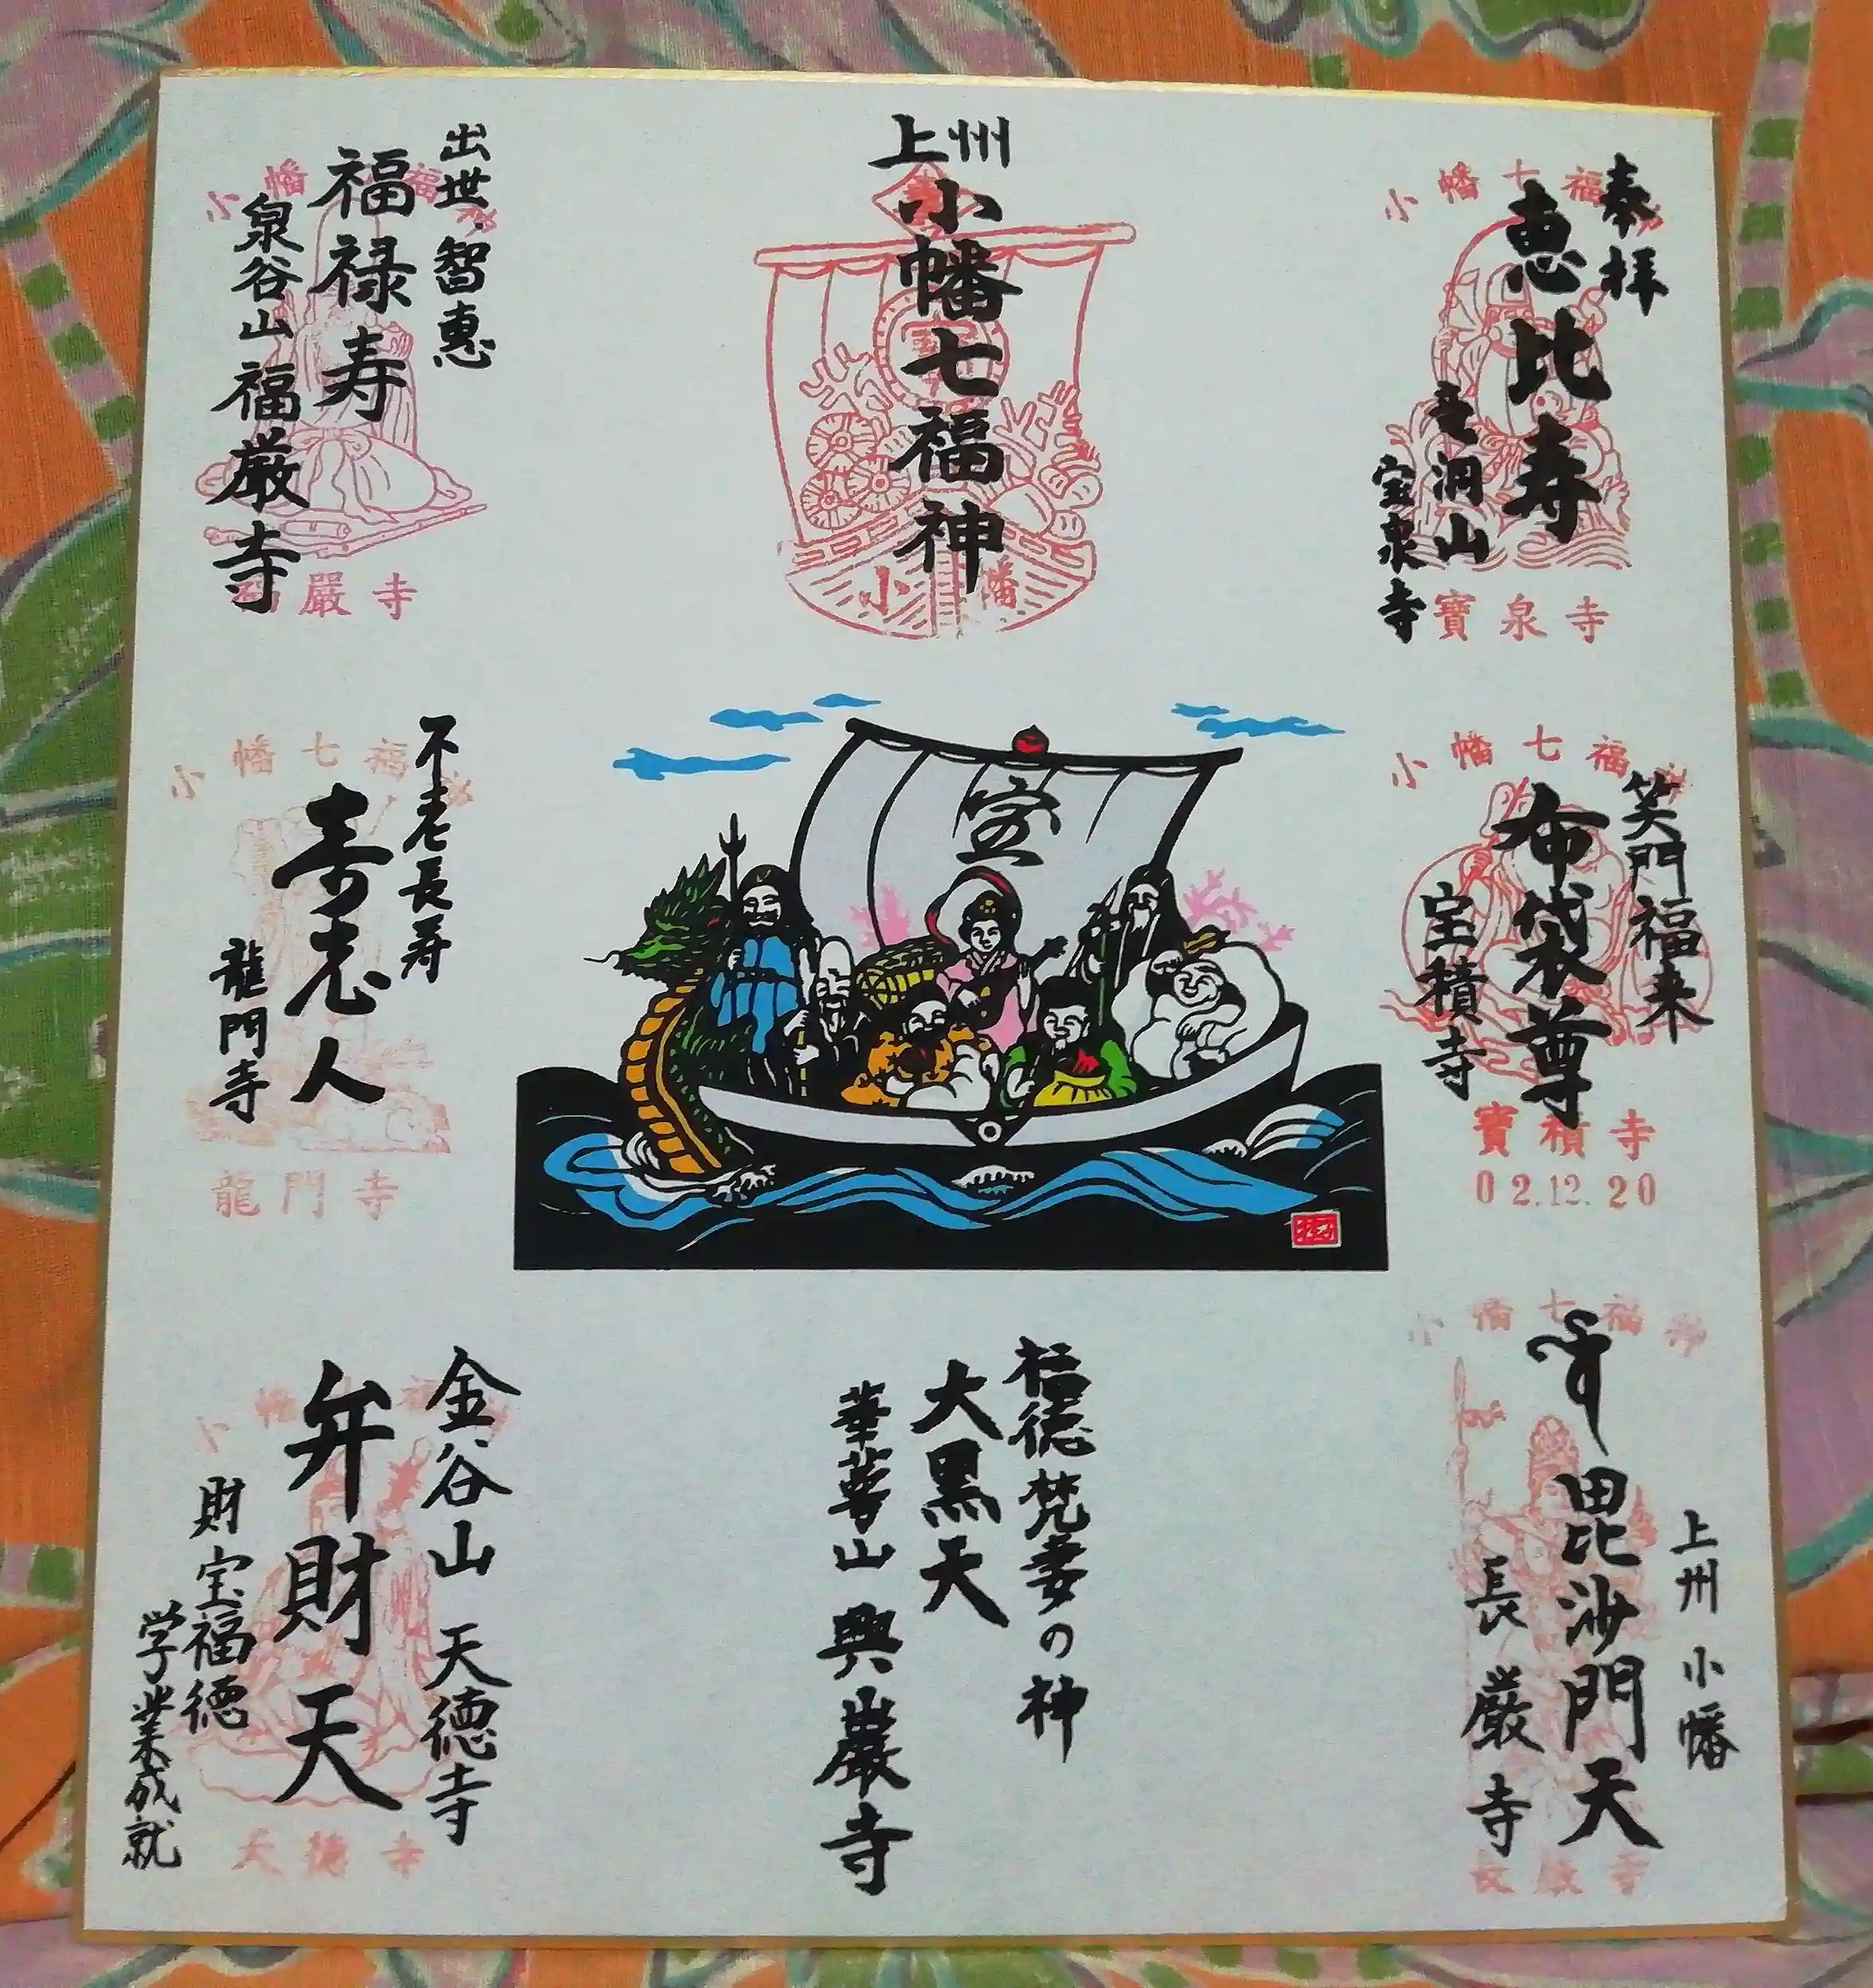 上州
小幡七福神
小幡
奉拝
恵比寿
洞山
宝泉寺
小幡七福神
寶泉寺
笑門福来
布袋尊
宝積寺
小幡七福神
寶積寺
02.12.20
上州 小幡
毘沙門天
長厳寺
小幡七福神
長厳寺
宝
福徳梵妻の神
大黒天
華蕚山 興巌寺
出世.智恵
福禄寿
泉谷山 福厳寺
小幡七福神
福嚴寺
不老長寿
寿老人
龍門寺
小幡七福神
龍門寺
金谷山 天徳寺
弁財天
財宝福徳
学業成就
小幡七福神
天徳寺